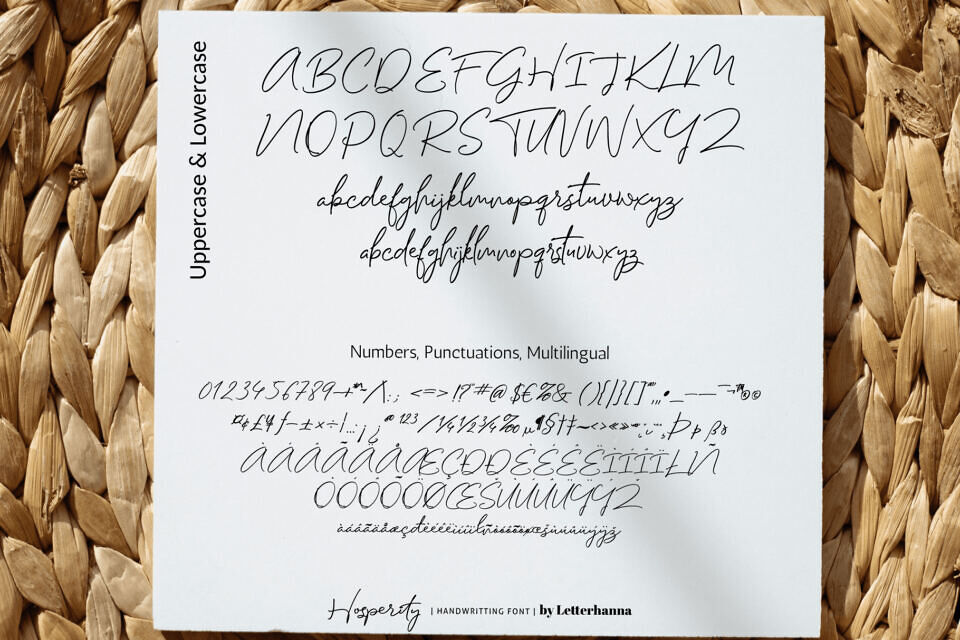 Uppercase & Lowercase
ABCDEFGHIJKLM
NOPQRSTUVWXYZ
abcdefghijklmnopqrstuvwxyz
abcdefghijklmnopqrstuvwxyz
Numbers, Punctuations, Multilingual
0123456789 :; <=> !?#@$€%& (){|}[]
¤¢£¥ƒ–±×÷ ¡¿ 123 /¼½¾‰µ¶§†‡ Þþßð
ÀÁÂÃÄÅÆÇÐĐÈÉÊËÌÍÎÏŁÑ
ÒÓÔÕÖØŒŠÙÚÛÜÝŸŽ
Hosperity | HANDWRITTING FONT | by Letterhanna